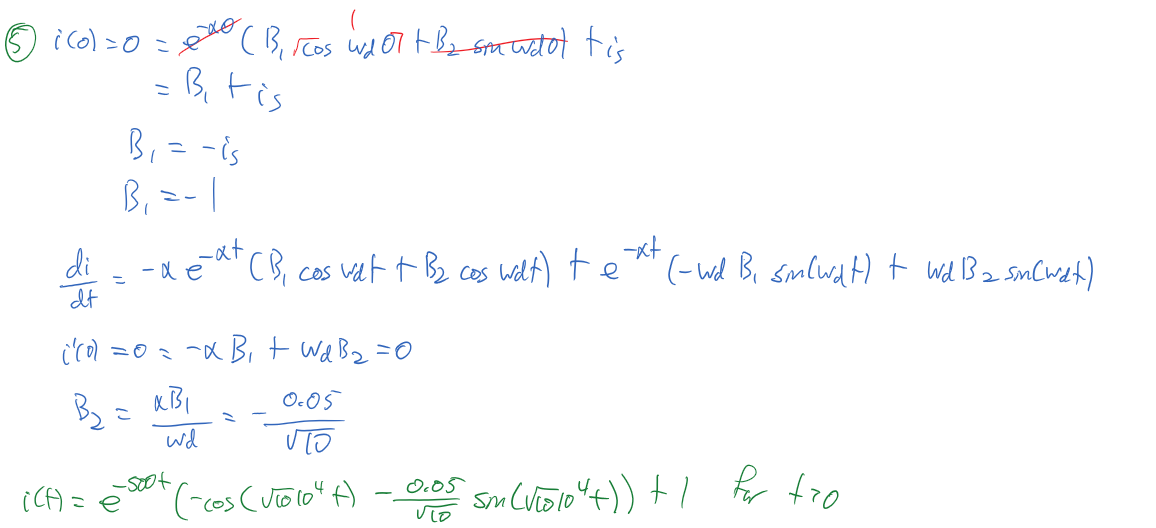 ⑤ i(0) = 0 = e^{-α0} (B₁ cos ω_d 0 + B₂ sin ω_d 0) + i_s
1
= B₁ + i_s
B₁ = -i_s
B₁ = -1
di/dt = -α e^{-αt} (B₁ cos ω_d t + B₂ cos ω_d t) + e^{-αt} (-ω_d B₁ sin(ω_d t) + ω_d B₂ sin(ω_d t)
i'(0) = 0 = -α B₁ + ω_d B₂ = 0
B₂ = αB₁/ω_d = - 0.05/√10
i(t) = e^{-500t} (-cos(√10 10⁴ t) - 0.05/√10 sin(√10 10⁴ t)) + 1 for t>0